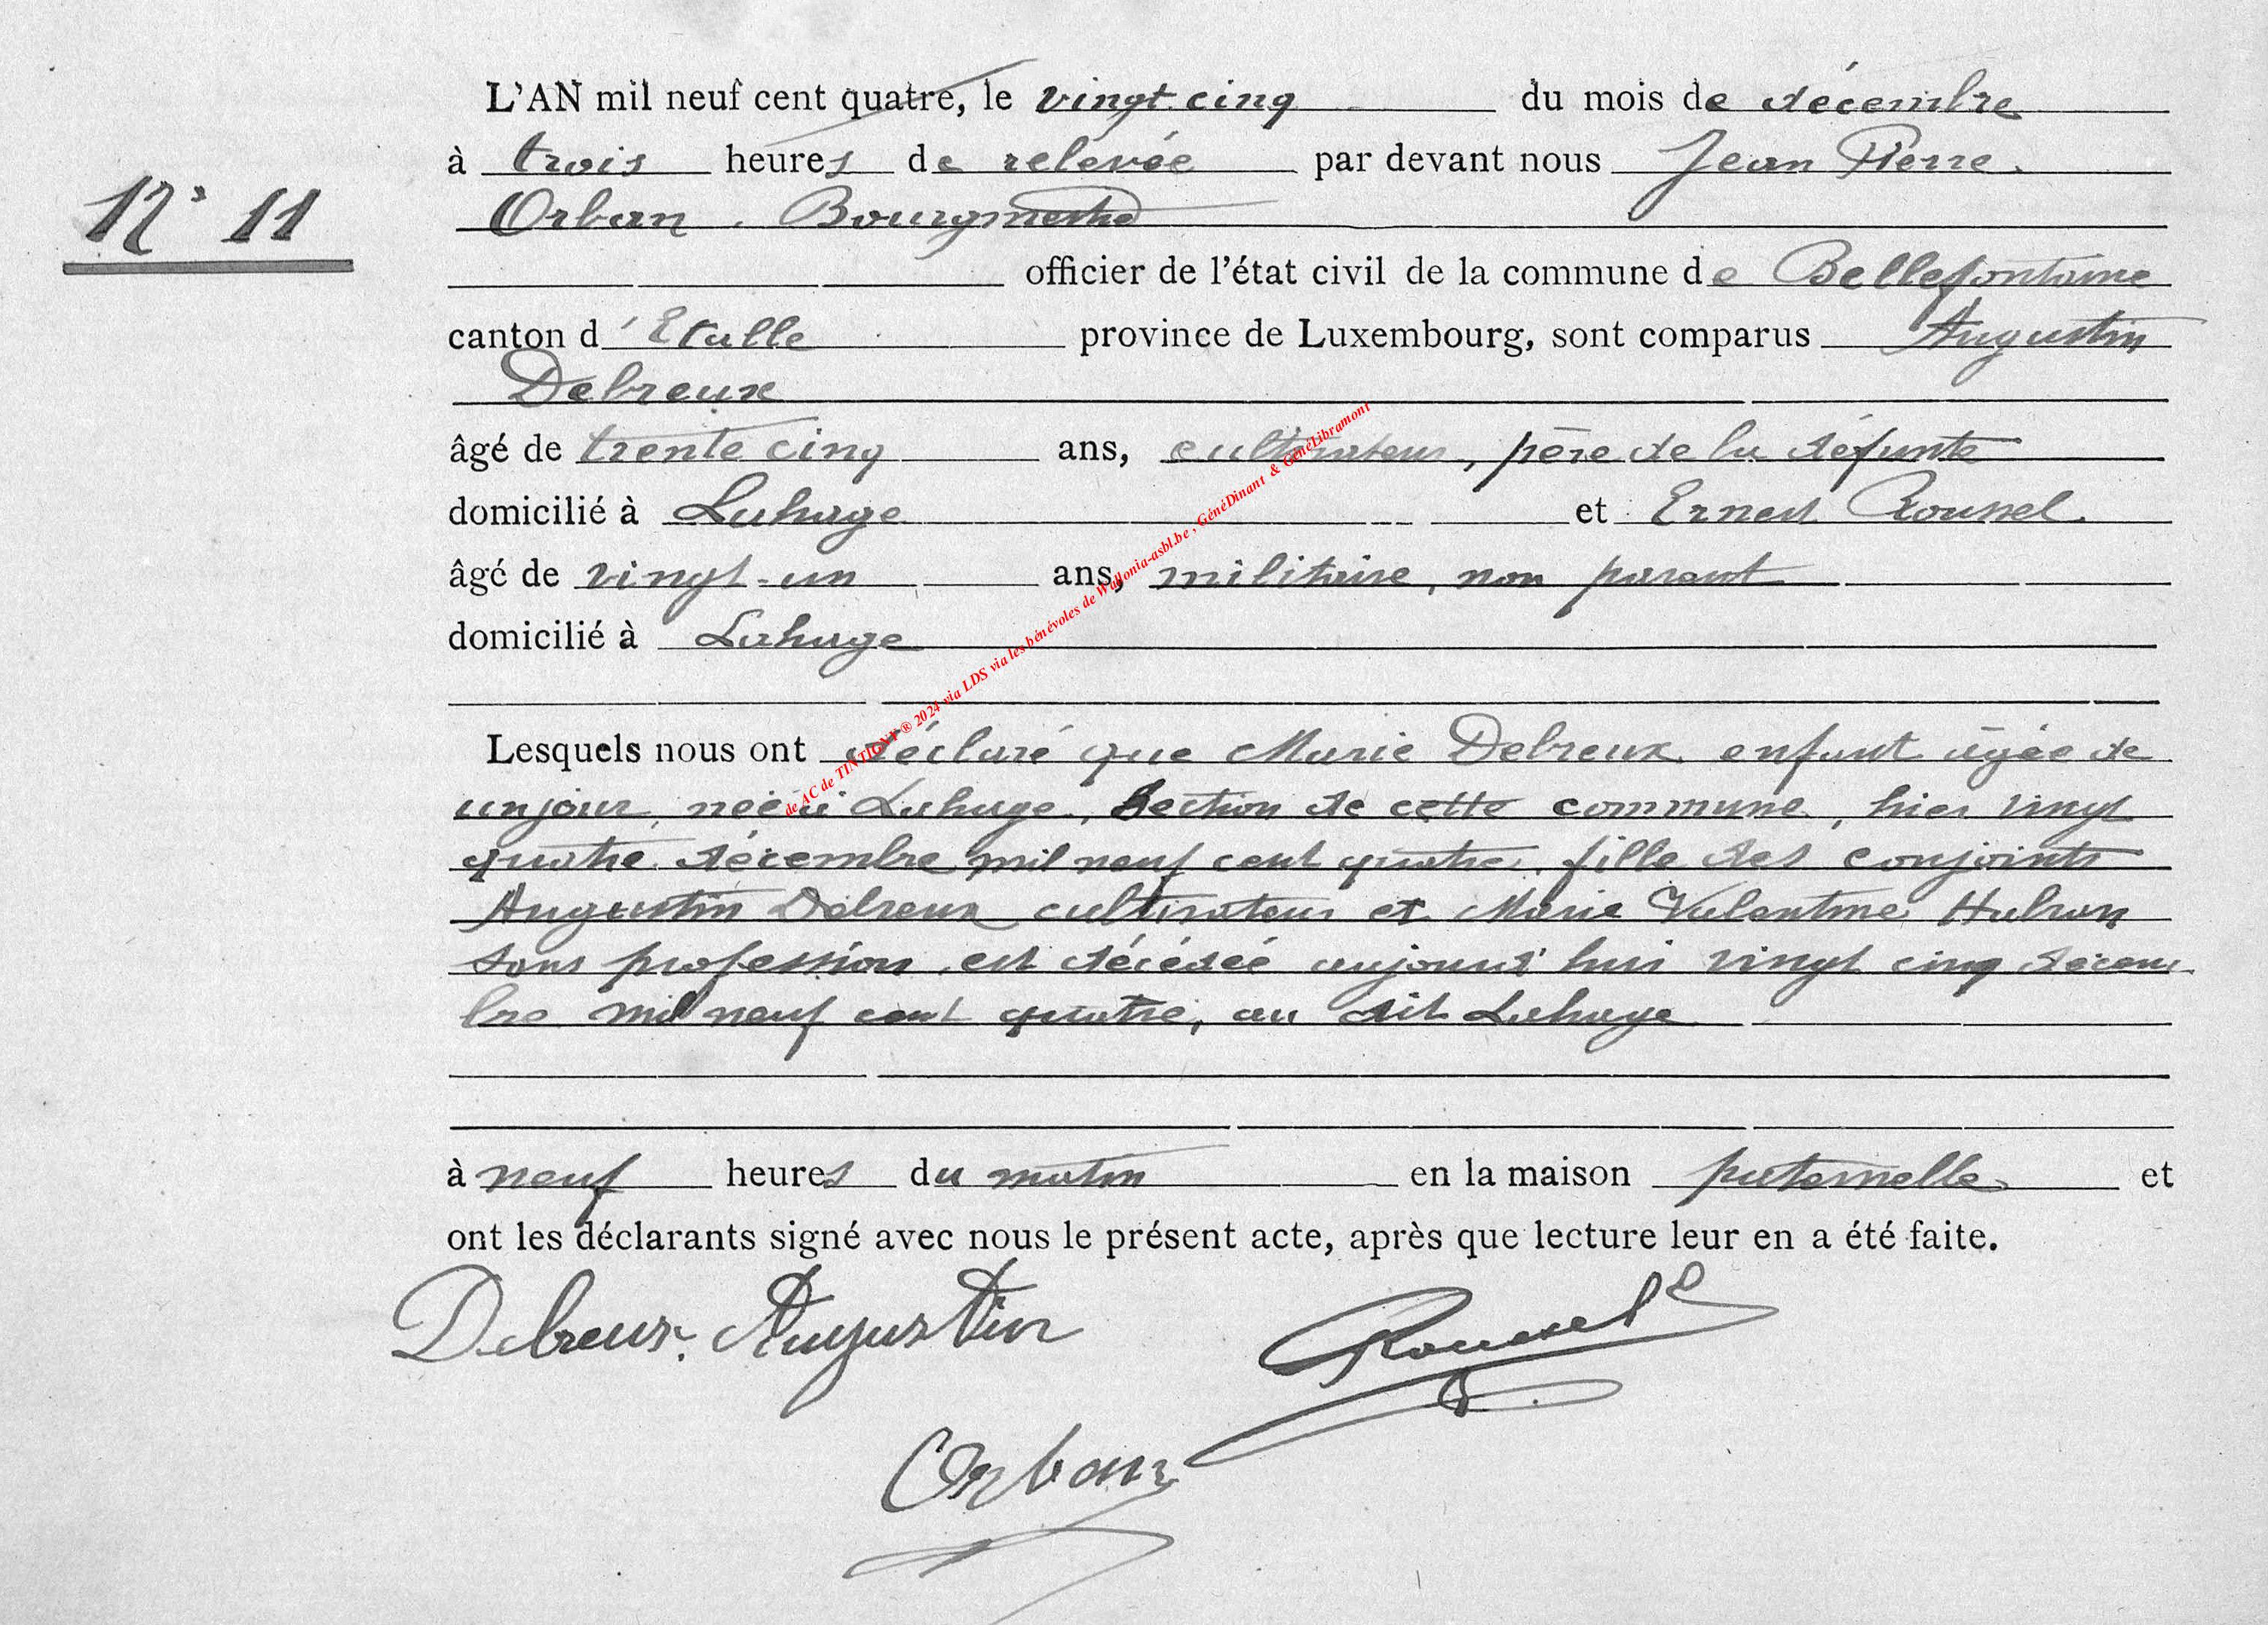 L'AN mil neuf cent quatre, le vingt cinq du mois de décembre
à trois heures de relevée par devant nous Jean Pierre
N° 11
Orban, Bourgmestre
officier de l'état civil de la commune de Bellefontaine
canton d'Etalle province de Luxembourg, sont comparus Augustin
Debreux
âgé de trente cinq ans, cultivateur, père de la défunte
domicilié à Lahage et Ernest Roussel
âgé de vingt-un ans, militaire, non parent
domicilié à Lahage
Lesquels nous ont déclaré que Marie Debreux enfant âgée de
un jour, née à Lahage, section de cette commune, hier vingt
quatre décembre mil neuf cent quatre, fille des conjoints
Augustin Debreux cultivateur et Marie Valentine
sans profession, est décédée aujourd'hui vingt cinq décem
bre mil neuf cent quatre, au dit Lahage
à neuf heures du matin en la maison paternelle et
ont les déclarants signé avec nous le présent acte, après que lecture leur en a été faite.
Debreux Augustin Roussel E
Orban
de AC de TINTIGNY ® 2024 via LDS via les bénévoles de Wallonia-asbl.be, GénéDinant & GénéLibramont